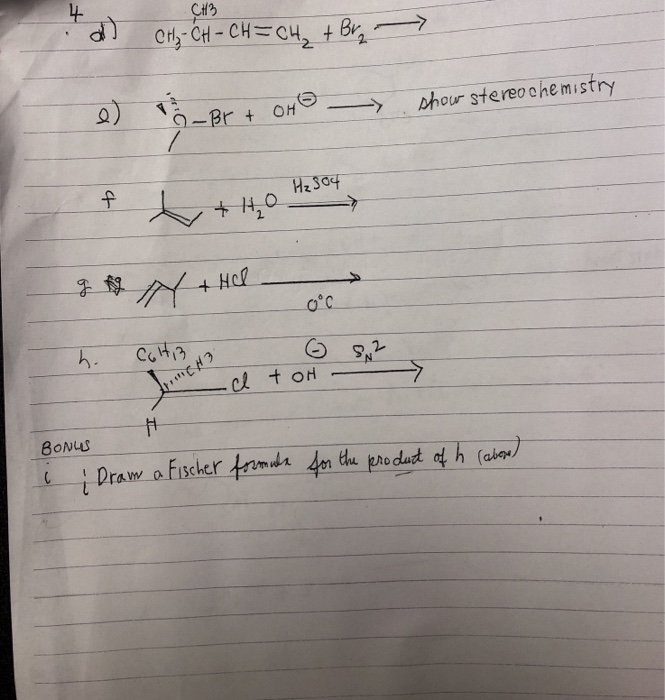 4
CH3
d) CH3-CH-CH=CH2 + Br2 →
e) C-Br + OH⊖ → show stereochemistry
f + H2O H2SO4 →
g + HCl → 0°C
h. C6H13 CH3 Cl + OH ⊖ SN2 →
H
BONUS
i Draw a Fischer formula for the product of h (above)